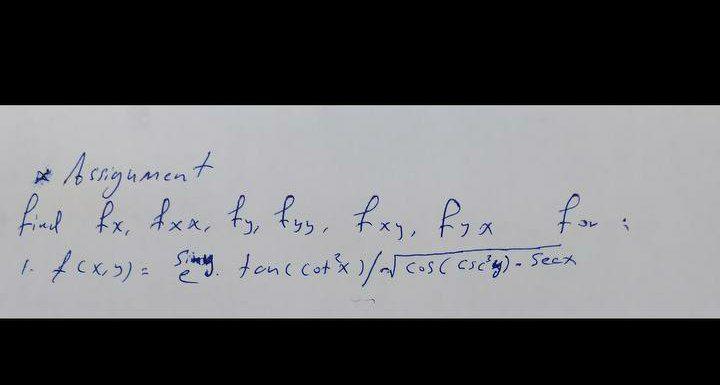 * Assignment
find fx, fxx, fy, fyy, fxy, fyx for :
1. f(x,y) = e^siny. tan(cot³x)/√cos(csc³y)-secx